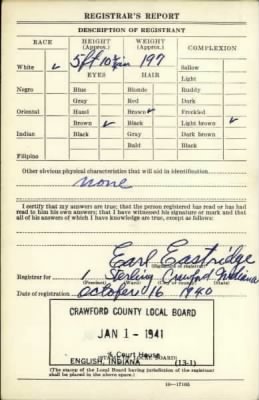 REGISTRAR'S REPORT
DESCRIPTION OF REGISTRANT
RACE HEIGHT (Approx.) WEIGHT (Approx.) COMPLEXION
White ✓ 5 ft 10 ½ in 197 Sallow
EYES HAIR Light
Negro Blue Blonde Ruddy
Gray Red Dark
Oriental Hazel Brown ✓ Freckled
Brown ✓ Black Light brown ✓
Indian Black Gray Dark brown
Bald Black
Filipino
Other obvious physical characteristics that will aid in identification
none
I certify that my answers are true; that the person registered has read or has had
read to him his own answers; that I have witnessed his signature or mark and that
all of his answers of which I have knowledge are true, except as follows:
Earl Eastridge
(Signature of registrar)
Registrar for 1 Sterling Crawford Indiana
(Precinct) (Ward) (City or county) (State)
Date of registration October 16 1940
CRAWFORD COUNTY LOCAL BOARD
JAN 1 - 1941
Court House
(STAMP OF LOCAL BOARD)
ENGLISH, INDIANA (13-1)
(The stamp of the Local Board having jurisdiction of the registrant shall be
placed in the above space.)